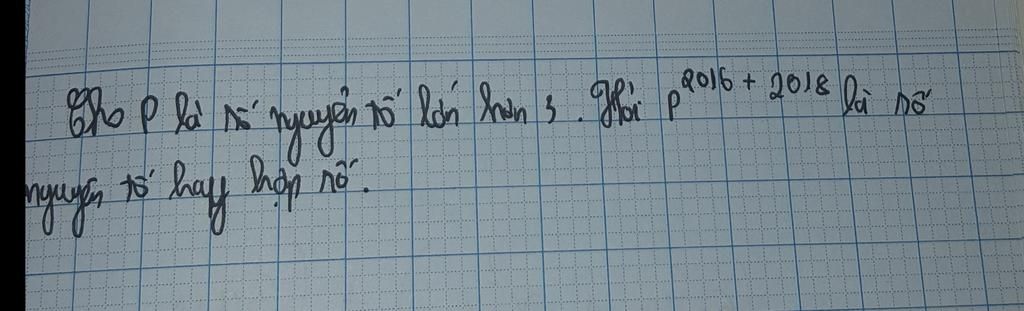 Cho p là số nguyên tố lớn hơn 3. Hỏi p^2016 + 2018 là số
nguyên tố hay hợp số.